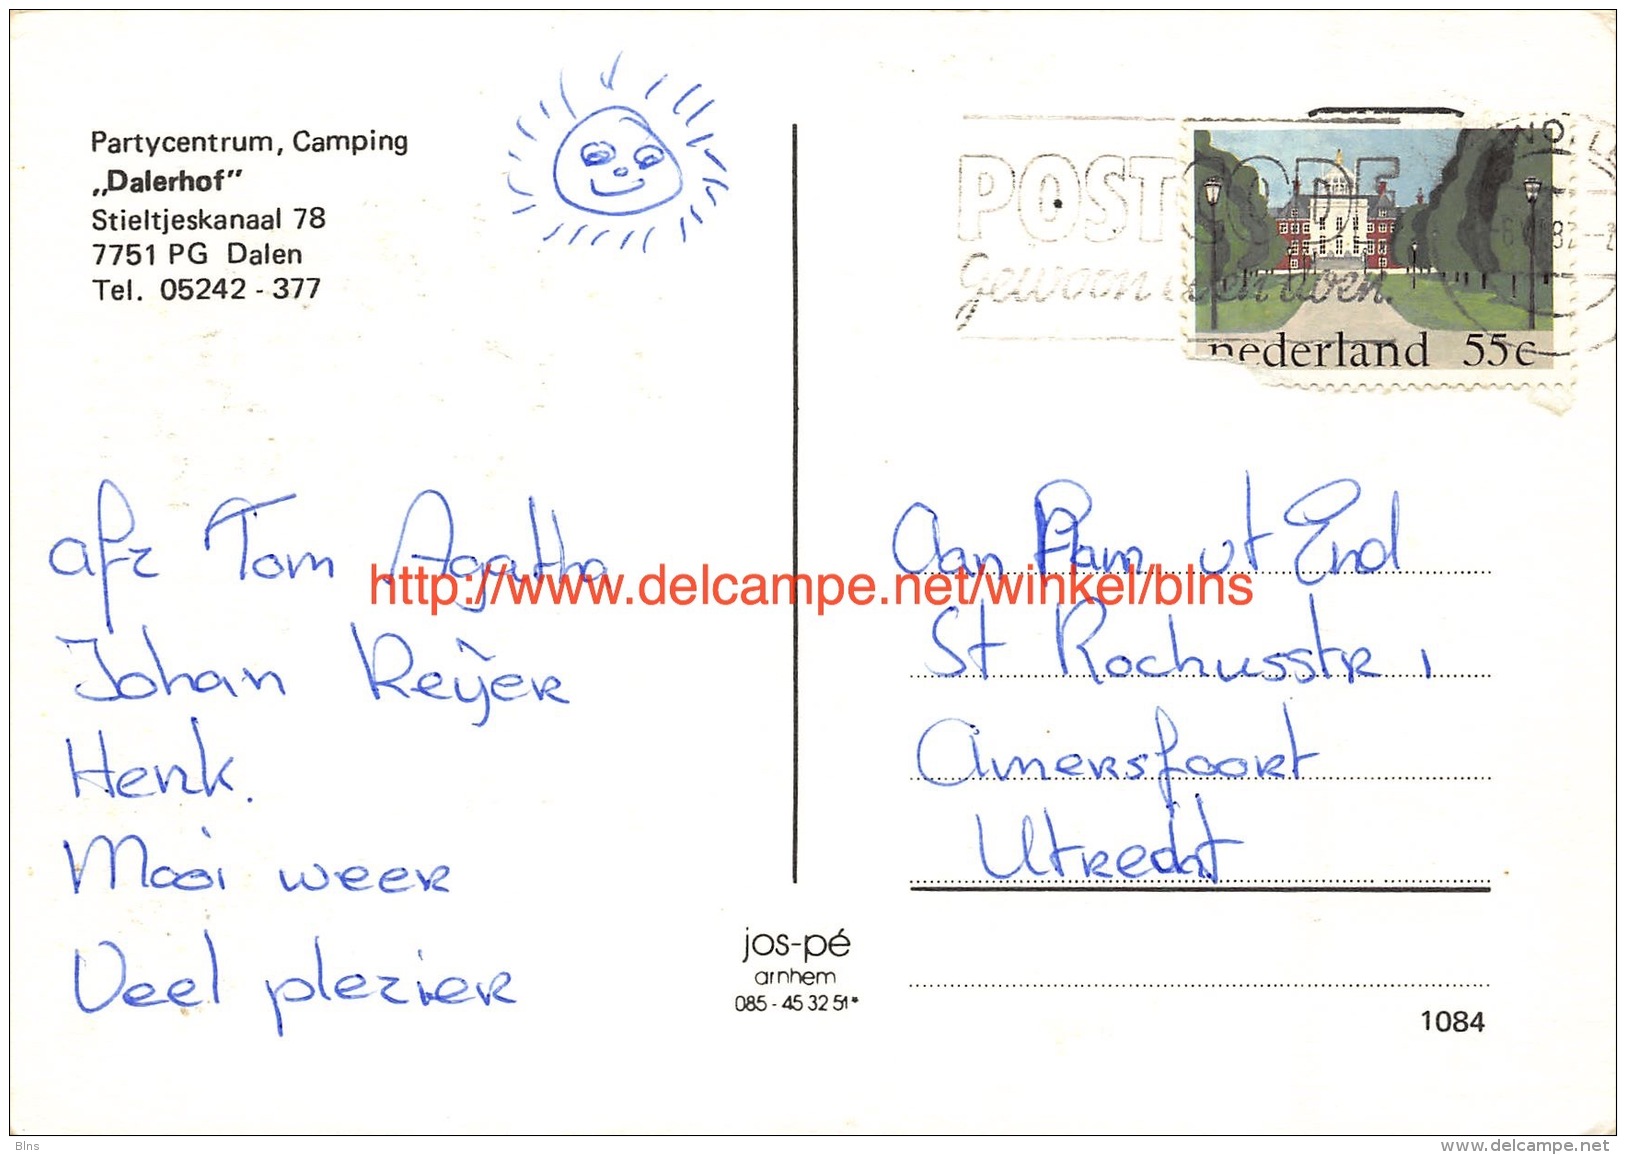 Partycentrum, Camping
„Dalerhof”
Stieltjeskanaal 78
7751 PG Dalen
Tel. 05242 - 377
POSTCODE
Gewoon even doen.
nederland 55c
afz Tom Agatha
Johan Reijer
Henk.
Mooi weer
Veel plezier
Aan Fam vt End
St Rochusstr 1
Amersfoort
Utrecht
http://www.delcampe.net/winkel/blns
jos-pé
arnhem
085 - 45 32 51*
1084
Blns
www.delcampe.net